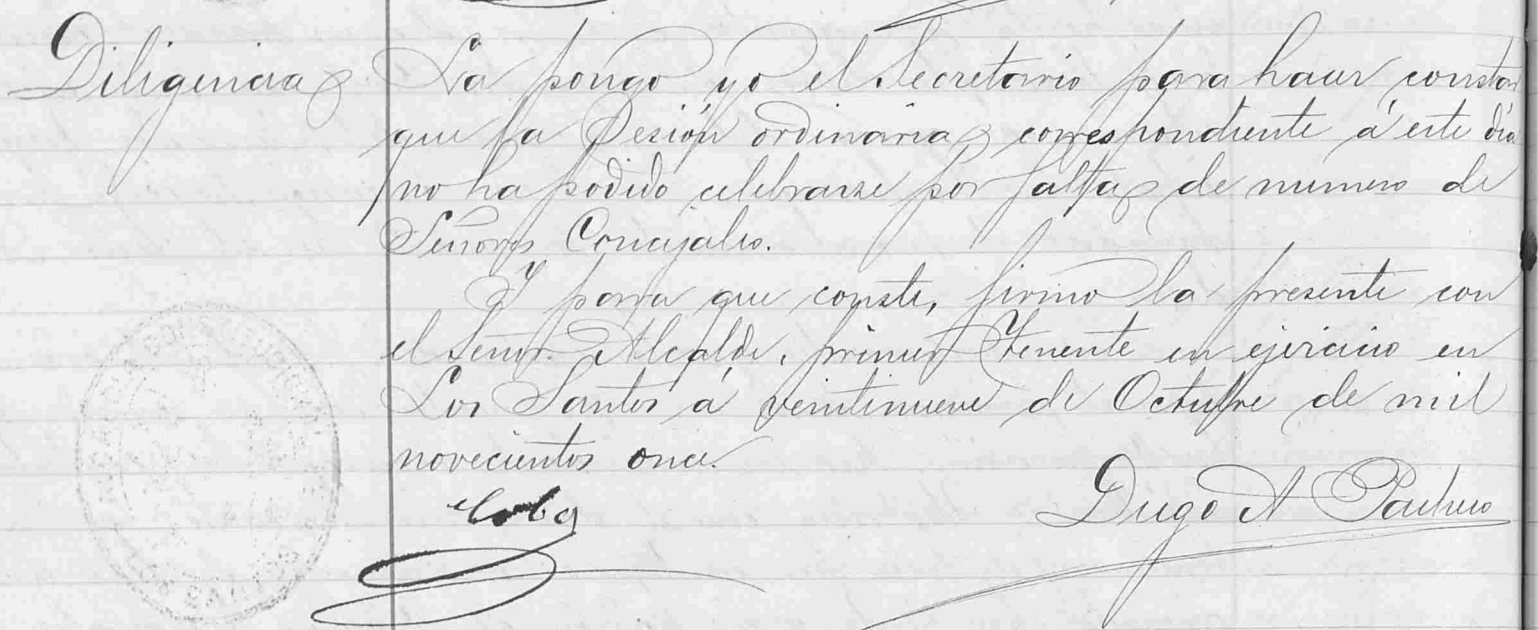 Diligencia
La pongo yo el Secretario para hacer constar
que la Sesión ordinaria correspondiente á este dia
no ha podido celebrarse por falta de numero de
Señores Concejales.
Y para que conste, firmo la presente con
el Señor Alcalde, primer Teniente en ejercicio en
Los Santos á veintinueve de Octubre de mil
novecientos once.
Diego A Pacheco
LOS SANTOS